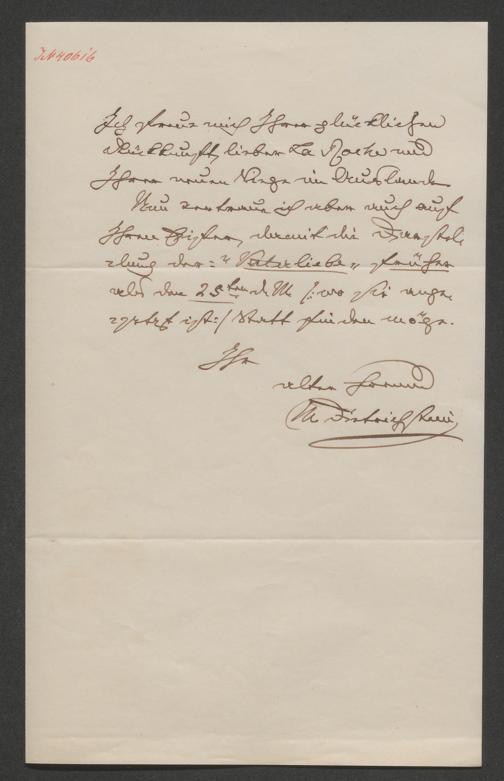 JN 40616
Ich freue mich Ihrer glücklichen
Rückkunft, lieber La Roche und
Ihrer neuen Siege im Auslande
Nun vertraue ich aber auch auf
Ihren Eifer, damit die Darstel-
lung der: "Vaterliebe" früher
als den 25ten d. M. /: wo sie ange-
setzt ist :/ Statt finden möge.
Ihr
alter Freund
M Dietrichstein